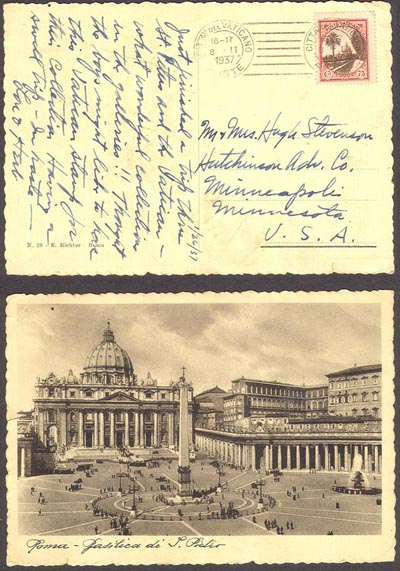 Just finished a trip thru
St. Peters and the Vatican -
what wonderful collection
in the galleries!! Thought
the boys might like to have
this Vatican stamp for
their collection. Having a
swell trip - In haste -
CITTA DEL VATICANO
16-17
8 · II
1937
POSTE
75
Mr & Mrs. Hugh Stevenson
Hutchinson Adv. Co.
Minneapolis
Minnesota
U. S. A.
N. 20 - E. Richter - Roma
Roma - Basilica di S. Pietro